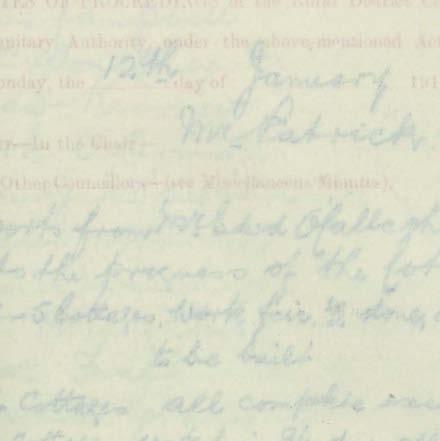 TES OF PROCEEDINGS of the Rural District C
anitary Authority, under the above-mentioned Act
onday, the 12th day of January 191
r—In the Chair— Mr Patrick
Other Councillors—(see Miscellaneous Minutes).
orts from Mr Edwd O'Callagh
ts the progress of the Cot
5 Cottages, work fair, done,
to be built
Cottages all complete